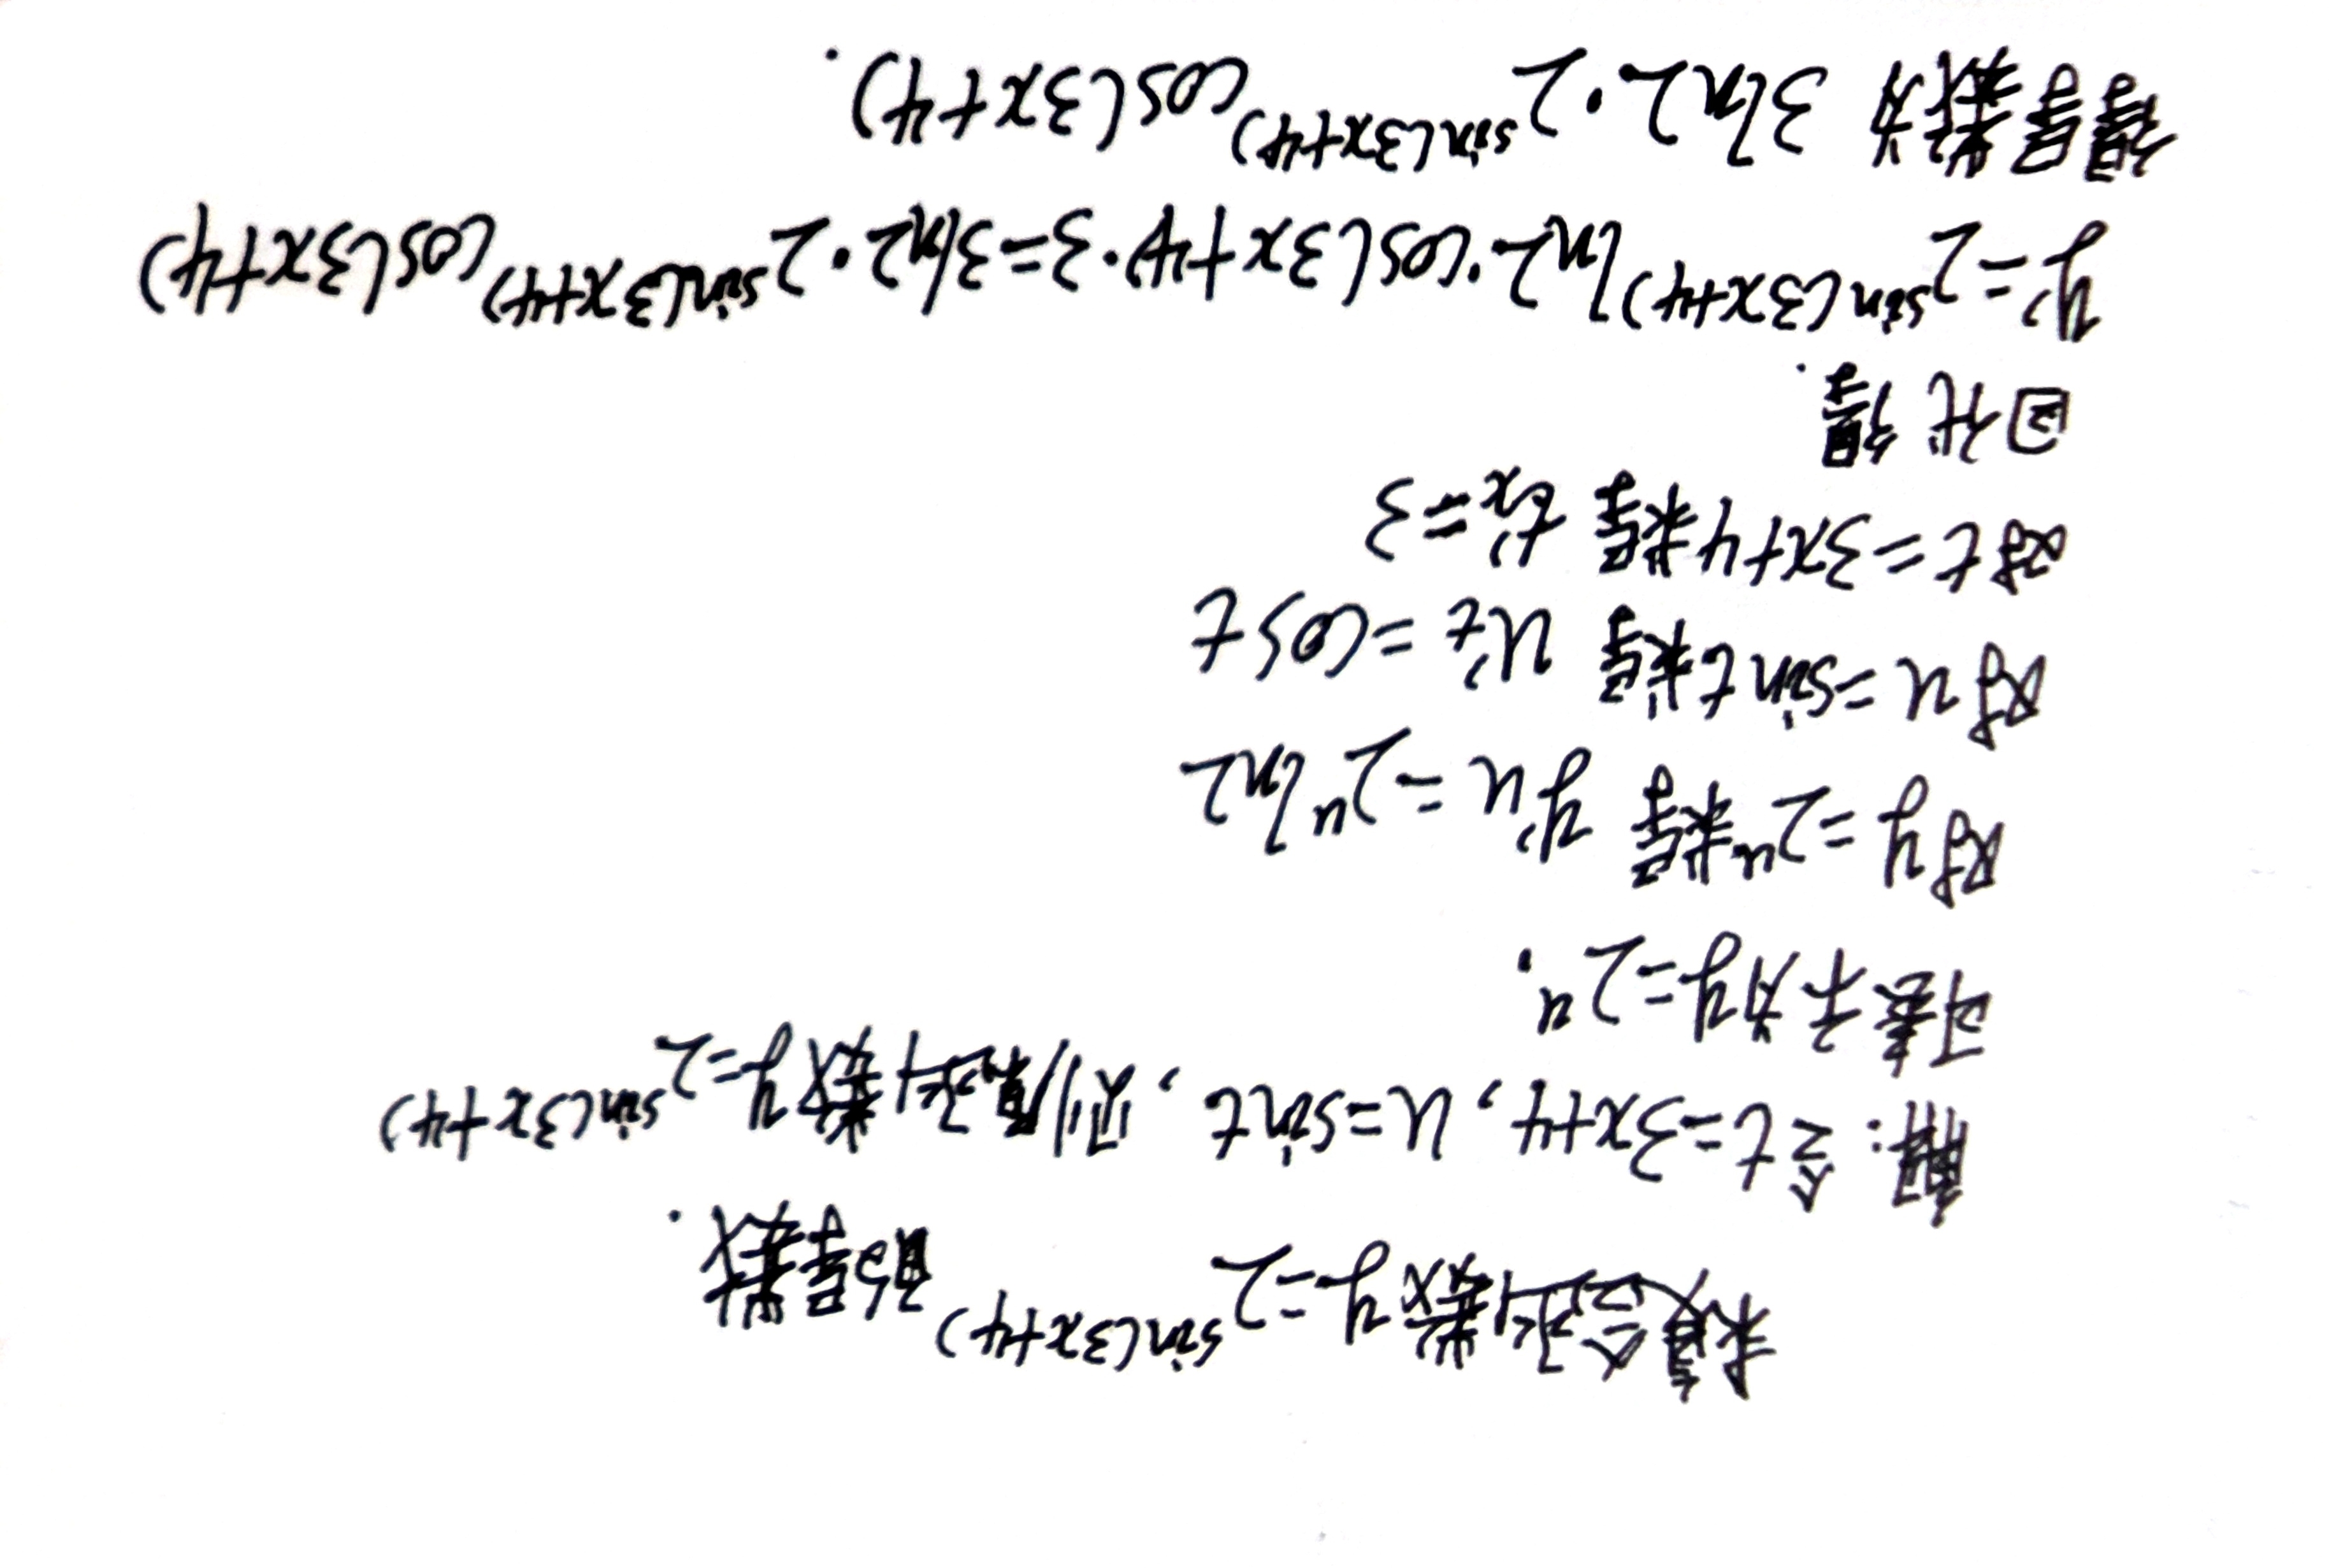 求复合函数y=2^sin(3x+4)的导数.
解:令t=3x+4,u=sint,则复函数y=2^sin(3x+4)
可表示为y=2^u.
对y=2^u求导 y'u=2^u ln2
对u=sint求导 u't=cost
对t=3x+4求导 t'x=3
回代得.
y'=2^sin(3x+4)ln2·cos(3x+4)·3=3ln2·2^sin(3x+4)cos(3x+4)
得导数为 3ln2·2^sin(3x+4)cos(3x+4).